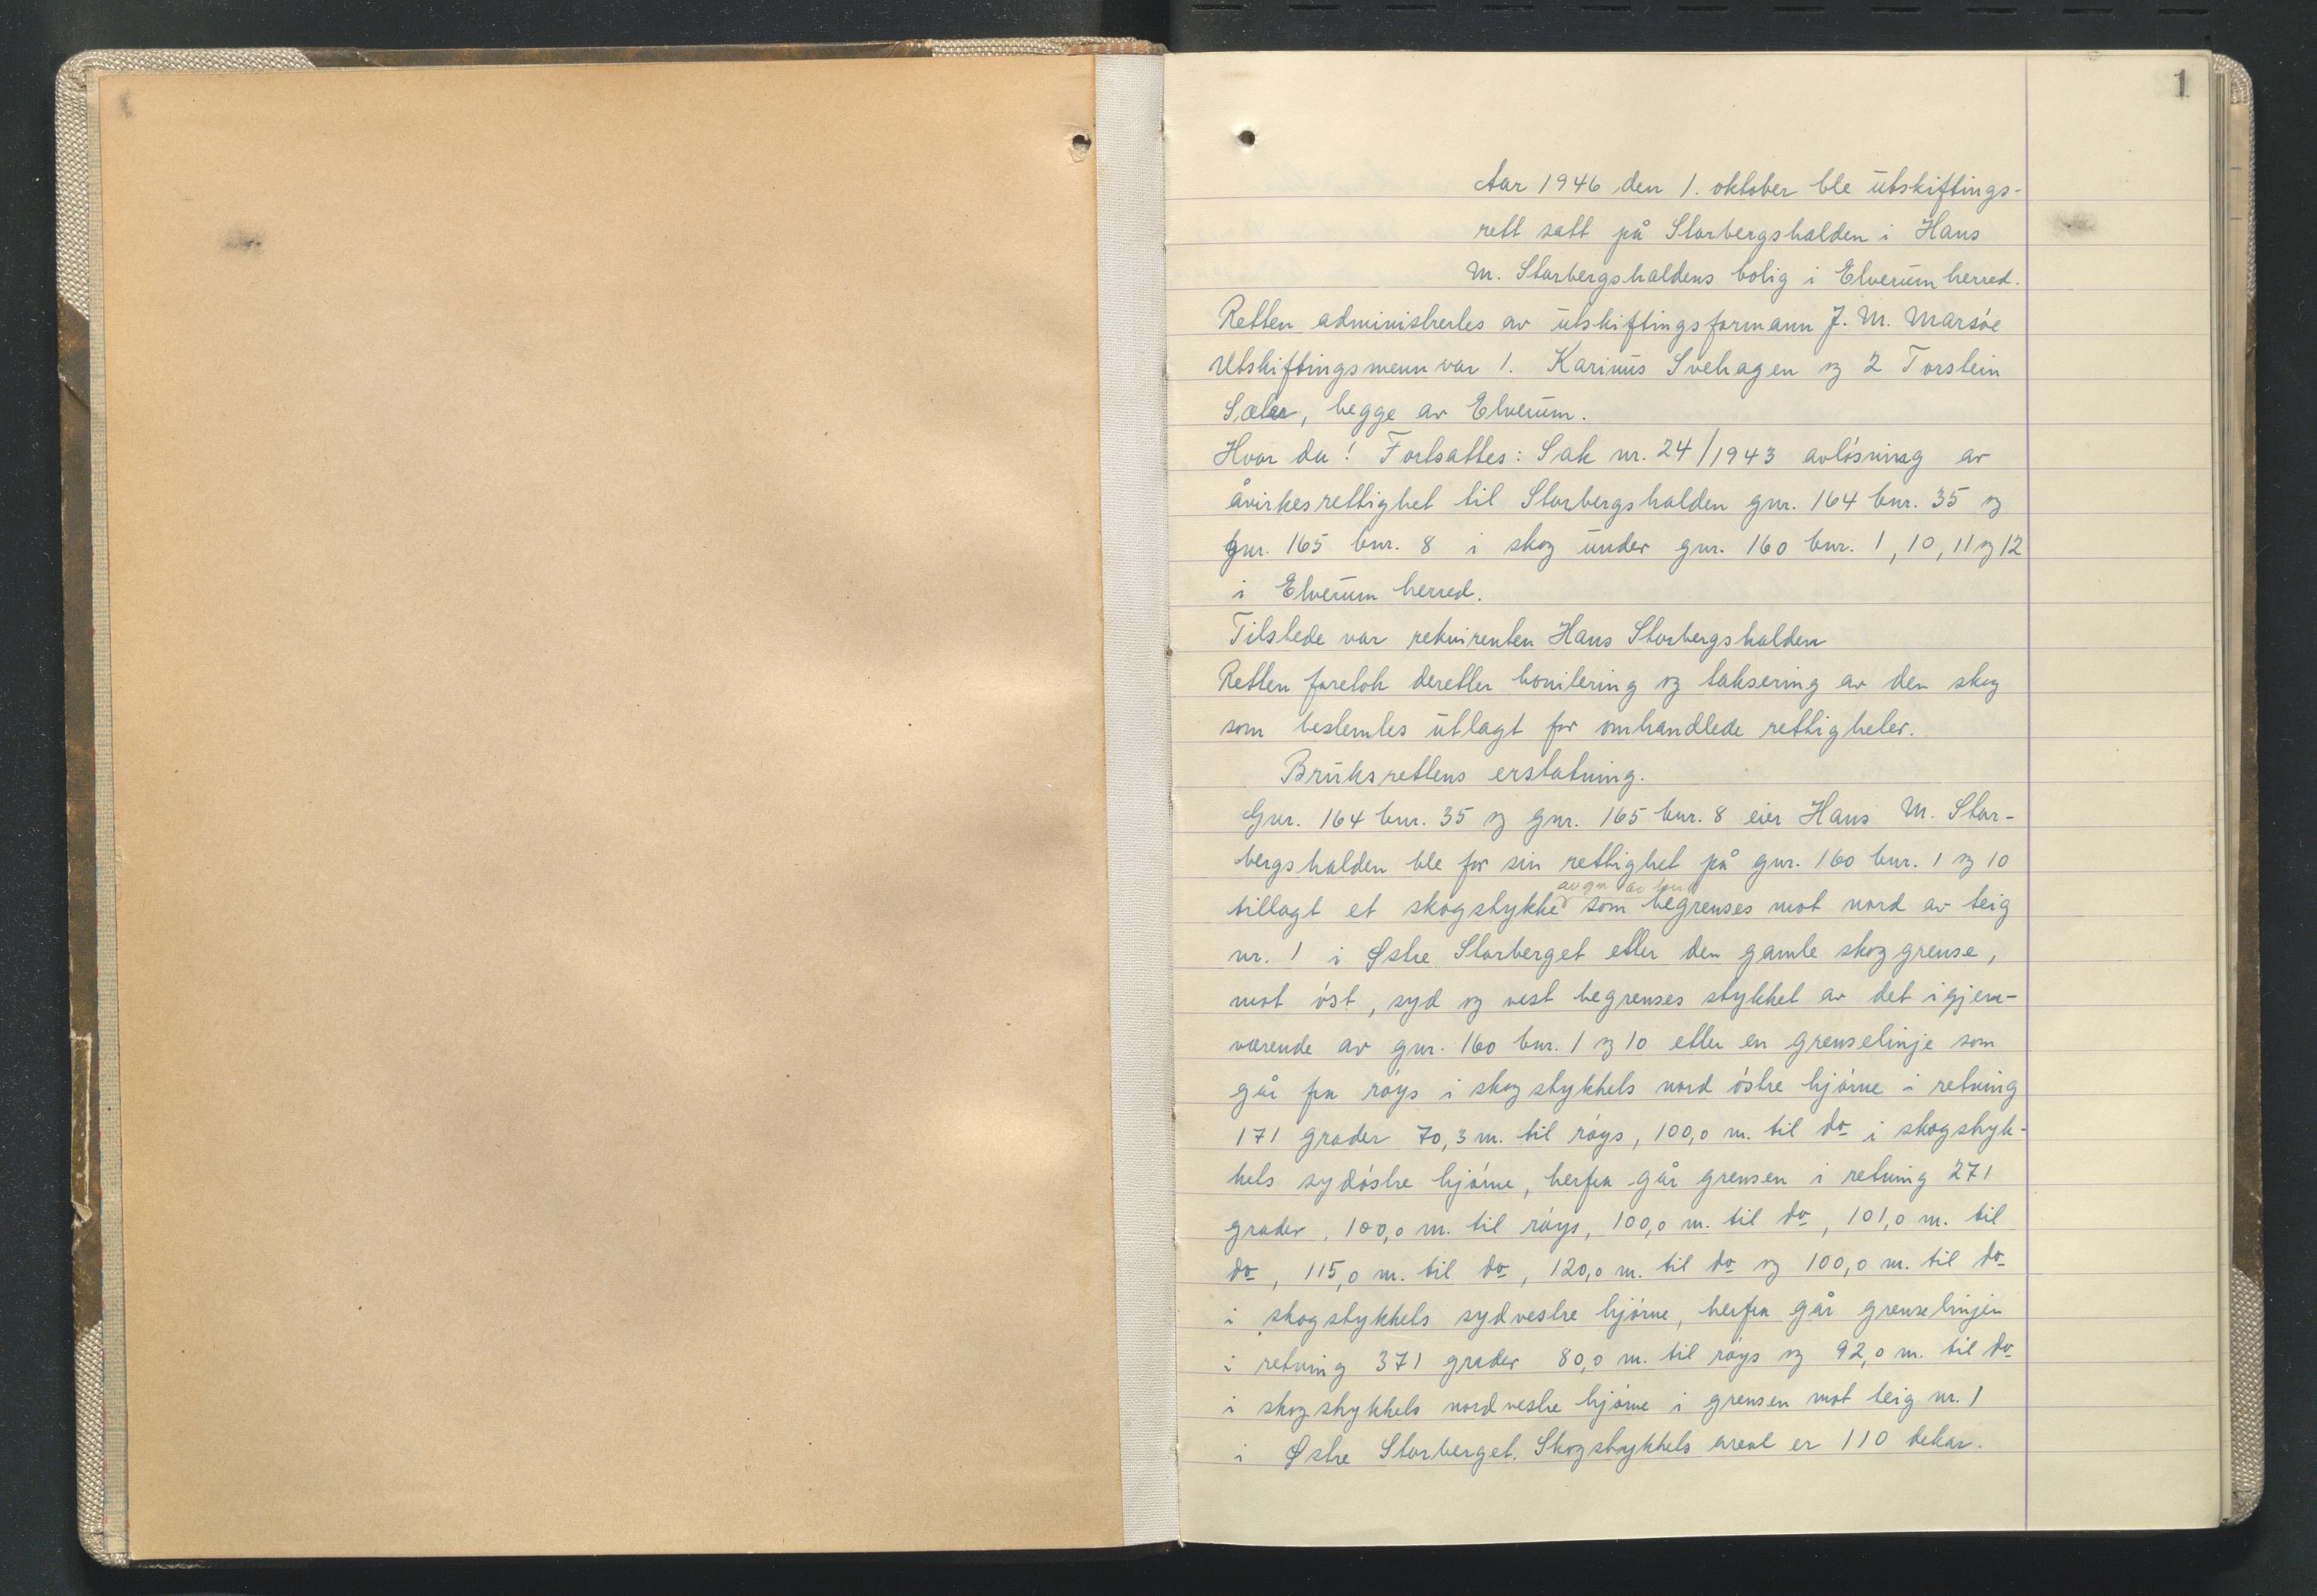 1
Aar 1946 den 1. oktober ble utskiftings-
rett satt på Storbergshalden i Hans
M. Storbergshaldens bolig i Elverum herred.
Retten administrertes av utskiftingsformann J. M. Marsøe
Utskiftingsmenn var 1. Karinus Svehagen og 2 Torstein
Sæler, begge av Elverum.
Hvor da! Fortsattes: Sak nr. 24/1943 avløsning av
åvirkesrettighet til Storbergshalden gnr. 164 bnr. 35 og
gnr. 165 bnr. 8 i skog under gnr. 160 bnr. 1, 10, 11 og 12
i Elverum herred.
Tilstede var rekvirenten Hans Storbergshalden
Retten foretok deretter bonitering og taksering av den skog
som bestemtes utlagt for omhandlede rettigheter.
Bruksrettens erstatning.
Gnr. 164 bnr. 35 og gnr. 165 bnr. 8 eier Hans M. Stor-
bergshalden ble for sin rettighet på gnr. 160 bnr. 1 og 10
tillagt et skogstykke som begrenses mot nord av teig
nr. 1 i Østre Storberget etter den gamle skoggrense,
mot øst, syd og vest begrenses stykket av det igjen-
værende av gnr. 160 bnr. 1 og 10 etter en grenselinje som
går fra røys i skogstykkets nord østre hjørne i retning
171 grader 70,3 m. til røys, 100,0 m. til do i skogstyk-
kets sydøstre hjørne, herfra går grensen i retning 271
grader, 100,0 m. til røys, 100,0 m. til do, 101,0 m. til
do, 115,0 m. til do, 120,0 m. til do og 100,0 m. til do
i skogstykkets sydvestre hjørne, herfra går grenselinjen
i retning 371 grader 80,0 m. til røys og 92,0 m. til do
i skogstykkets nordvestre hjørne i grensen mot teig nr. 1
i Østre Storberget. Skogstykkets areal er 110 dekar.